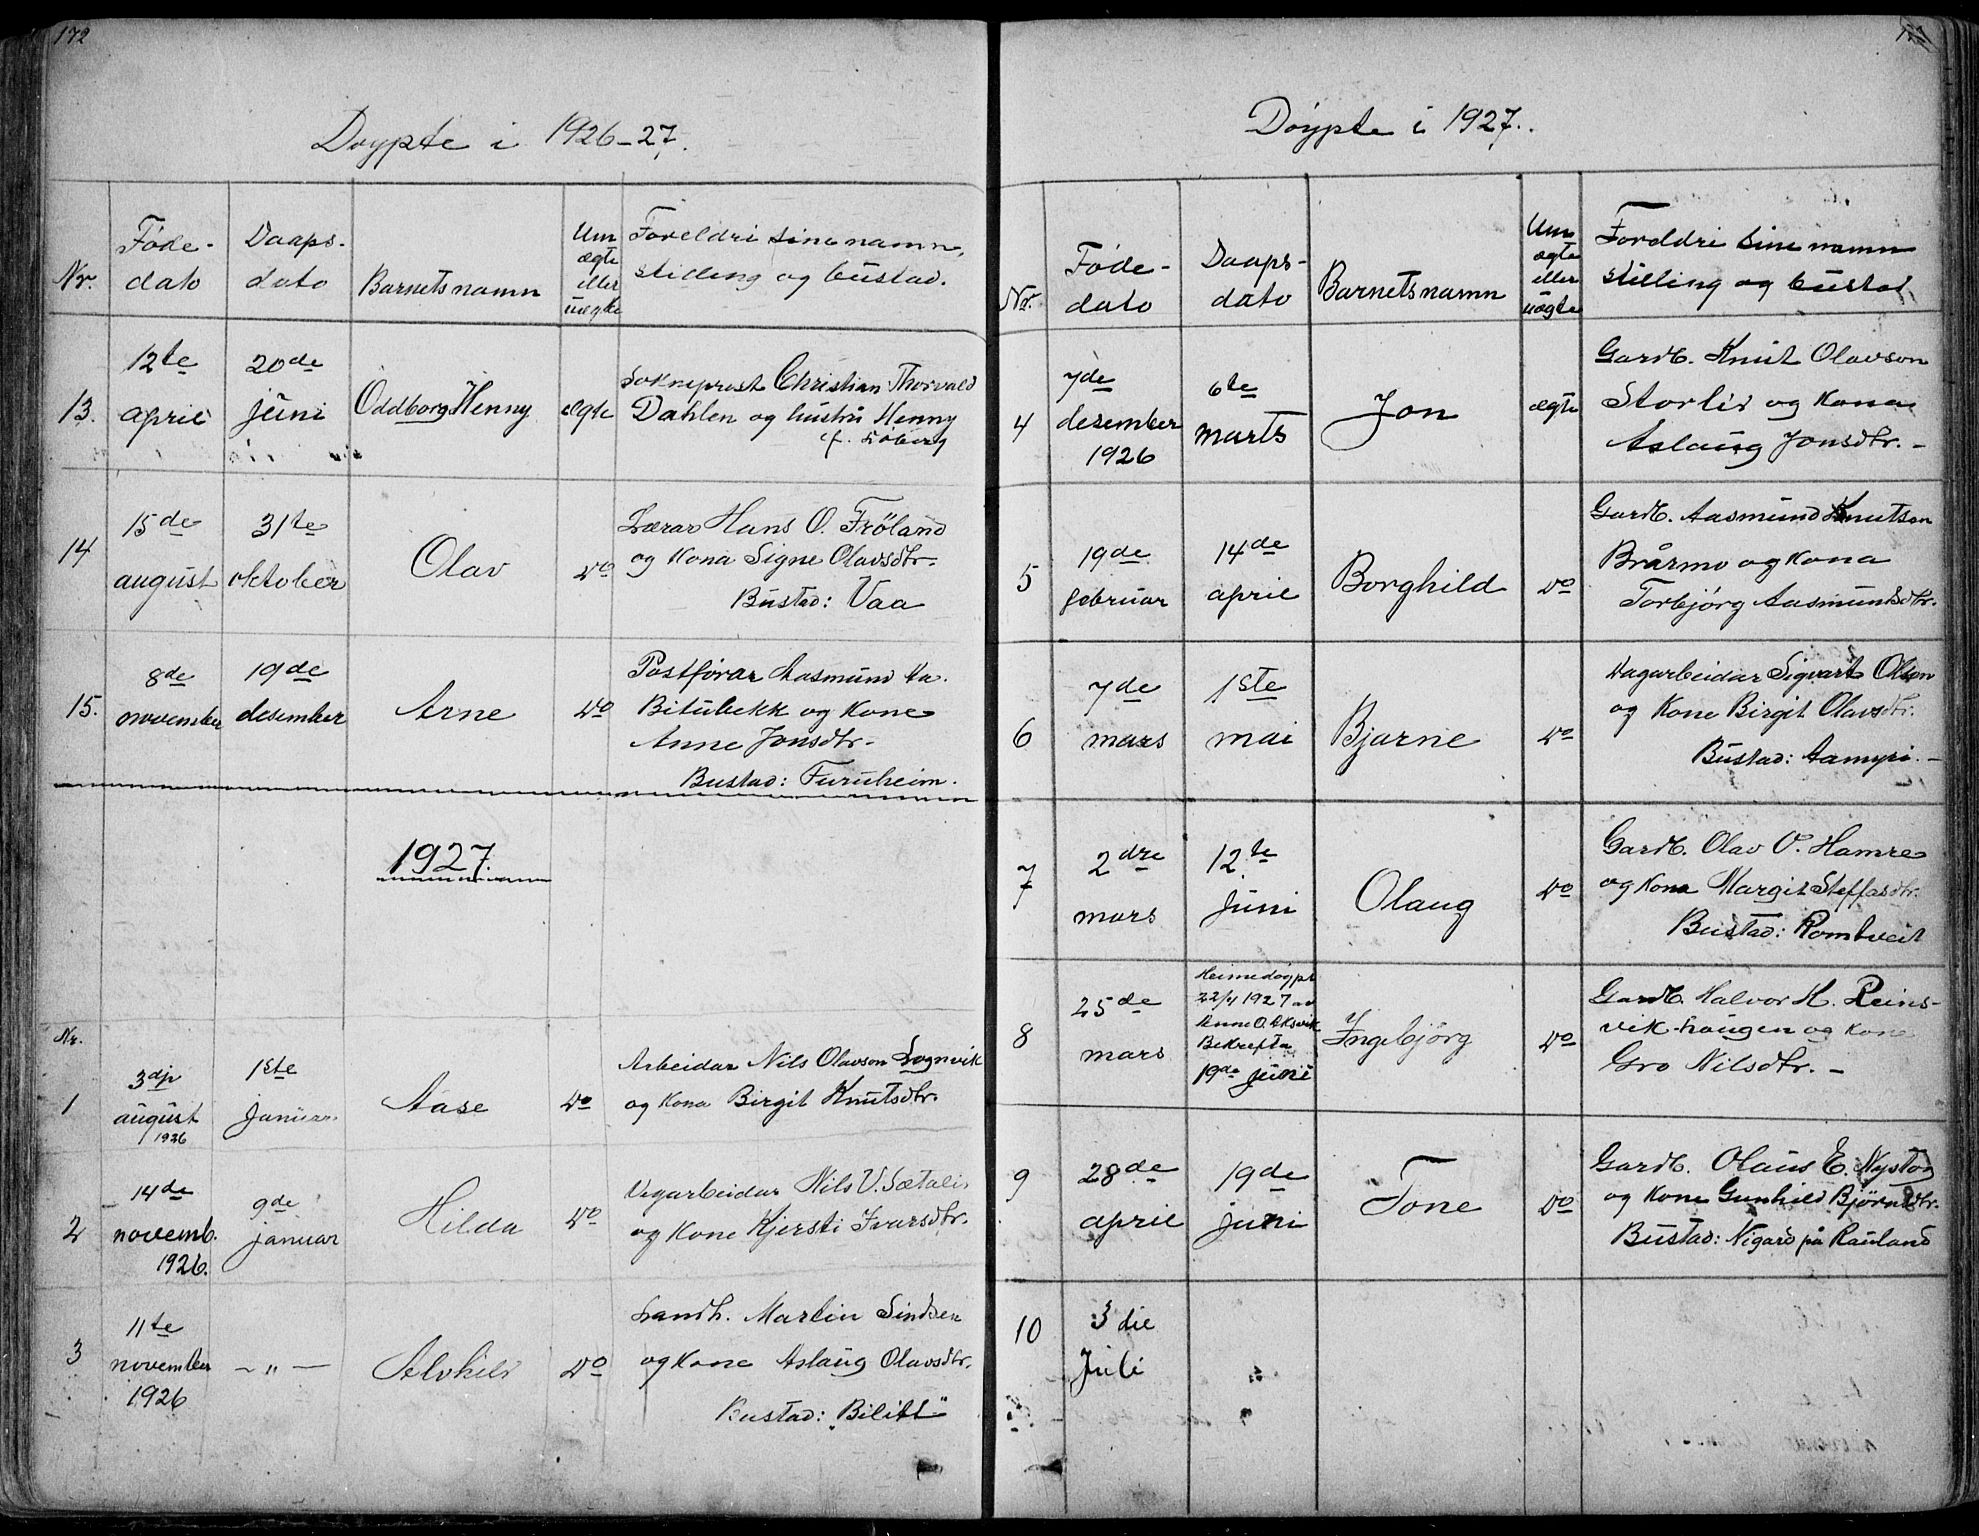 172
Døypte i 1926-27.
Nr.
Føde-
dato
Daaps-
dato
Barnets namn
Um
ægte
eller
uægte
Foreldri sine namn,
stiding og bustad.
13.
12te
april
20de
juni
Oddborg Henny
ægte
Sokneprest Christian Thorvald
Dahlen og hustru Henny
f. Søberg
14
15de
august
31te
oktober
Olav
do
Lærar Hans O. Frøland
og Kona Signe Olavsdtr.
Bustad: Vaa
15.
8de
november
19de
desember
Arne
do
Postførar Aasmund Aa.
Bitubekk og Kone
Anne Jonsdtr.
Bustad: Furuheim.
1927.
Nr.
1
3dje
august
1926
1ste
Januar
Aase
do
Arbeidar Nils Olavson Lognvik
og Kona Birgit Knutsdtr.
2
14de
novemb.
1926.
9de
januar
Hilda
do
Vegarbeidar Nils V. Sætali
og Kone Kjersti Ivarsdtr.
3
11te
november
1926
- " -
Alvhild
do
Landh. Martin Sindsen
og Kone Aslaug Olavsdtr.
Bustad: "Bilitt"
Døypte i 1927.
Nr.
Føde-
dato
Daaps-
dato
Barnets namn
Um
ægte
eller
uægte
Foreldri sine namn
stilling og bustad
4
7de
desember
1926
6te
marts
Jon
ægte
Gardb. Knut Olavson
Storlid og Kona
Aslaug Jonsdtr. -
5
19de
februar
14de
april
Borghild
do
Gardb. Aasmund Knutson
Brårmo og Kona
Torbjørg Aasmundsdtr.
6
7de
mars
1ste
mai
Bjarne
do
Dagarbeidar Sigvart Olson
og Kone Birgit Olavsdtr.
Bustad: Aamyri. -
7
2dre
mars
12te
Juni
Olaug
do
Gardb. Olav O. Hamre
og Kona Margit Steffasdtr.
Bustad: Romtveit
8
25de
mars
Heimedøypt
22/4 1927 av
Anne O. Aksvik
Bekrefta
19de Juni
Ingebjørg
do
Gardb. Halvor H. Reins-
vik-haugen og Kone
Gro Nilsdtr. -
9
28de
april
19de
juni
Tone
do
Gardb. Olaus E. Nystog
og Kone Gunhild Bjørnsdtr.
Bustad: Nigard på Rauland
10
3die
Juli